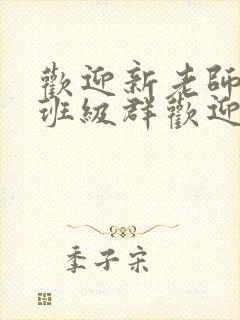 歡迎新老師
班級群歡迎
季子宋